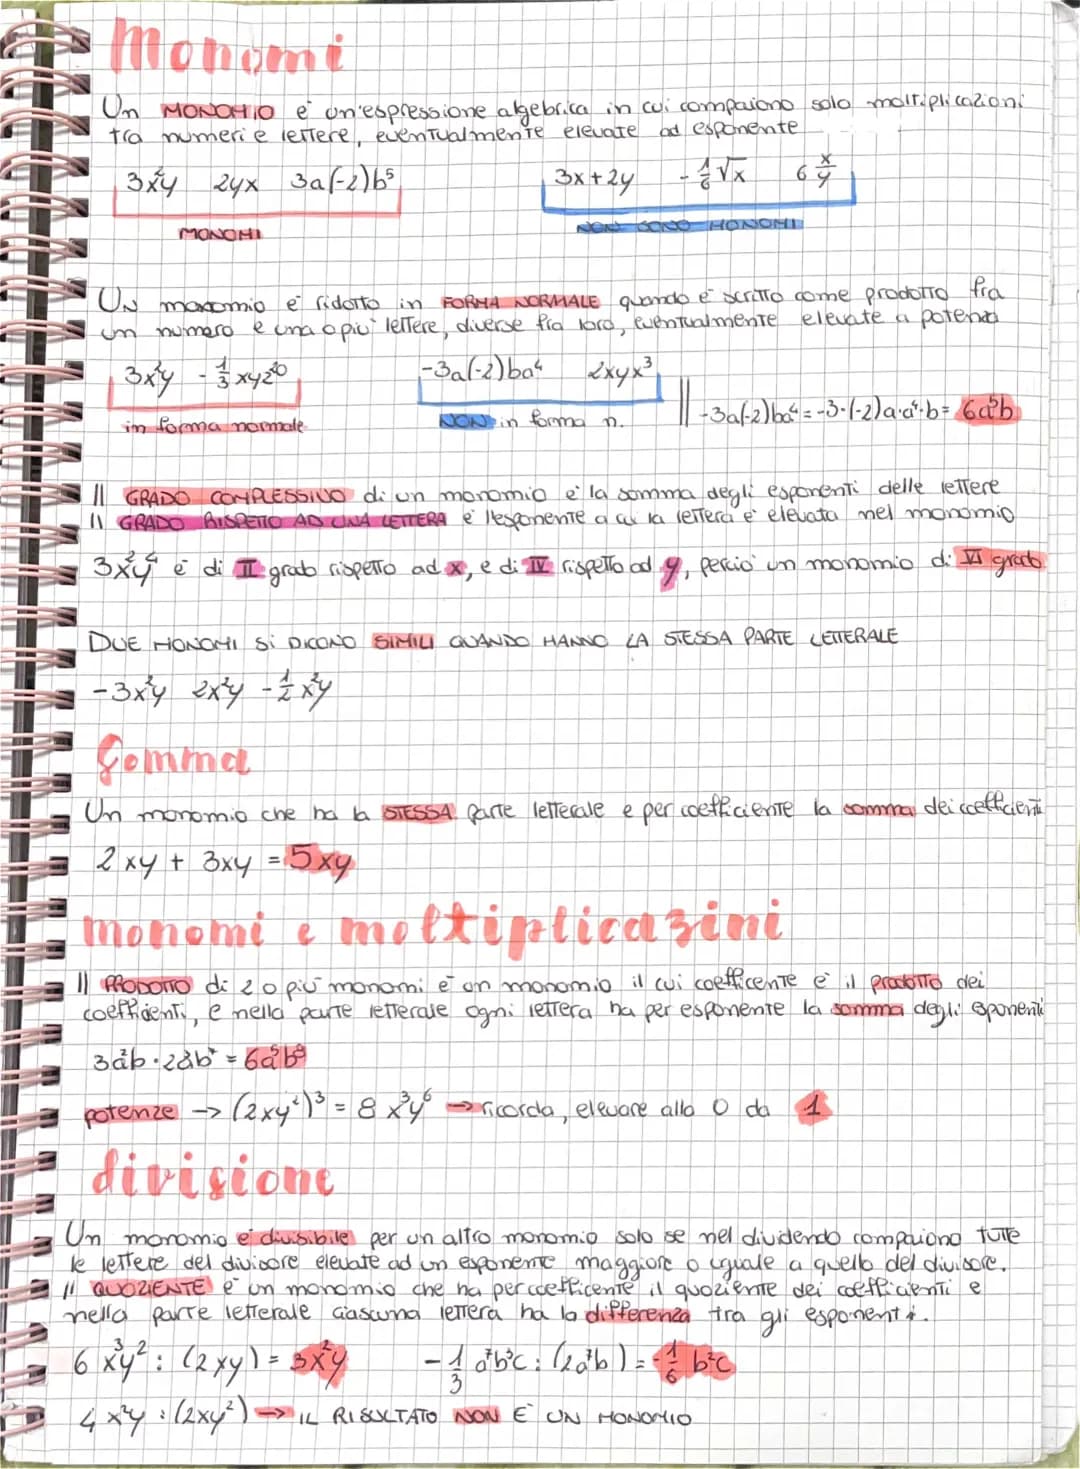 Monomi
Un MONOMIO è un'espressione algebrica in cui compaiono solo moltiplicazioni
tra numeri e lettere, eventualmente elevate ad esponente
3x²y 2yx 3a(-2)b⁵ 3x+2y -1/6√x 6 x/y
MONOMI NON SONO MONOMI
UN monomio è ridotto in FORMA NORMALE quando è scritto come prodotto fra
un numero e una o più lettere, diverse fra loro, eventualmente elevate a potenza
3x²y -1/3xyz²⁰ -3a(-2)ba⁴ 2xyx³
-3a(-2)ba⁴=-3·(-2)a·a⁴·b= 6a⁵b
in forma normale NON in forma n.
Il GRADO COMPLESSIVO di un monomio è la somma degli esponenti delle lettere
Il GRADO RISPETTO AD UNA LETTERA è l'esponente a cui la lettera è elevata nel monomio
3x²y⁴ è di II grado rispetto ad x, e di IV rispetto ad y, perciò un monomio di VI grado
DUE MONOMI Si DICONO SIMILI QUANDO HANNO LA STESSA PARTE LETTERALE
-3x²y 2x²y -1/2x²y
Somma
Un monomio che ha la STESSA parte letterale e per coefficiente la somma dei coefficienti
2xy + 3xy = 5xy
monomi e moltiplicazini
Il PRODOTTO di 2 o più monomi è un monomio il cui coefficente è il prodotto dei
coefficienti, e nella parte letterale ogni lettera ha per esponente la somma degli esponenti
potenze → (2xy²)³ = 8x³y⁶ → ricorda, elevare allo 0 da 1
divisione
Un monomio è divisibile per un altro monomio solo se nel dividendo compaiono tutte
le lettere del divisore elevate ad un esponente maggiore o uguale a quello del divisore.
Il QUOZIENTE è un monomio che ha per coefficente il quoziente dei coefficienti e
nella parte letterale ciascuna lettera ha la differenza tra gli esponenti.
6x³y² : (2xy) = 3x²y -1/3 a⁷b³c : (2a⁷b) = -1/6 b²c
4x²y : (2xy²) → IL RISULTATO NON È UN MONOMIO